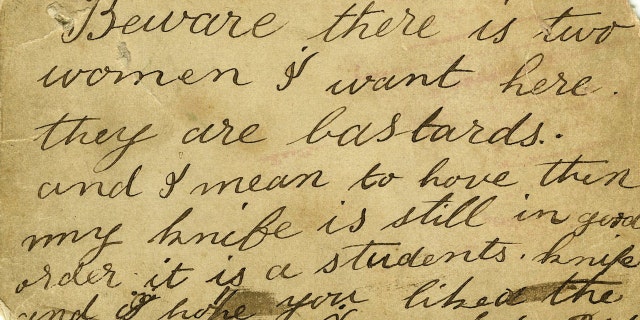 Beware there is two
women I want here.
they are bastards.
and I mean to hove them
my knife is still in good
order it is a students. knife
and I hope you liked the